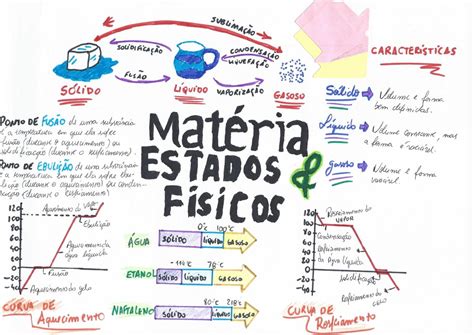 SUBLIMAÇÃO
SOLIDIFICAÇÃO
CONDENSAÇÃO
LIQUEFAÇÃO
FUSÃO
VAPORIZAÇÃO
SÓLIDO
LÍQUIDO
GASOSO
CARACTERÍSTICAS
Sólido
Volume e forma
bem definidas.
Líquido
Volume constante, mas
a forma é variável.
gasoso
Volume e forma
variável.
PONTO DE FUSÃO: de uma substância
é a temperatura em que ela sofre
fusão (durante o aquecimento) ou
solidificação (durante o resfriamento).
PONTO DE EBULIÇÃO: de uma substância
é a temperatura em que ela sofre
ebulição (durante o aquecimento) ou
(durante o Resfriamento)
Matéria
ESTADOS &
FÍSICOS
120
100
80
60
40
20
0
-20
-40
Aquecimento do VAPOR
Ebulição
Aquecimento da
água líquida
Fusão
Aquecimento do gelo
CURVA DE
Aquecimento
0°C 100°C
ÁGUA SÓLIDO LÍQUIDO GASOSO
78°C
ETANOL SÓLIDO LÍQUIDO GASOSO
80°C 218°C
NAFTALENO SÓLIDO LÍQUIDO GASOSO
120
100
80
60
40
20
0
-20
-40
Resfriamento do
VAPOR
Condensação
Resfriamento
da água líquida
Solidificação
Resfriamento do
gelo
CURVA DE
Resfriamento